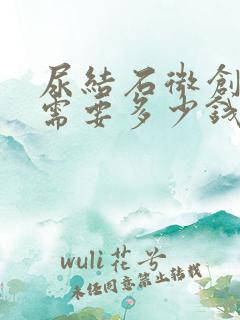 尿結石微創
需要多少錢
wuli花兮
未经同意禁止转载